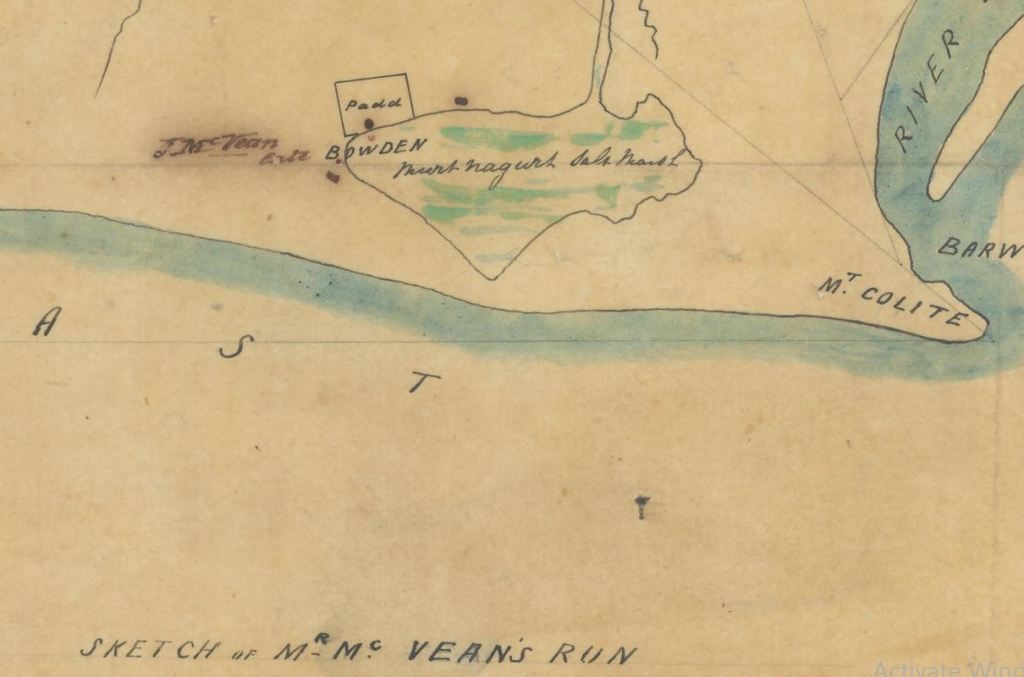 RIVER
Padd
J. McVean
BOWDEN
Murtnagurt Salt Marsh
BARW
MT. COLITE
A S T
SKETCH OF MR. Mc VEAN'S RUN
Activate Wind